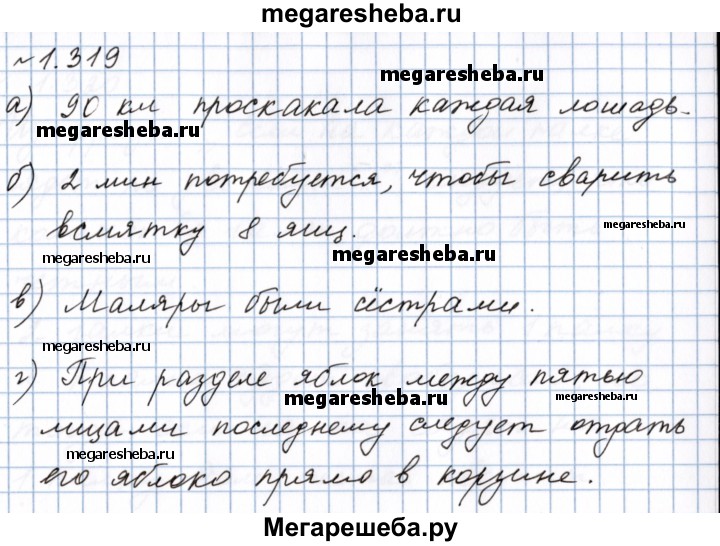 megaresheba.ru
~1.319
megaresheba.ru
а) 90 км проскакала каждая лошадь.
megaresheba.ru
б) 2 мин потребуется, чтобы сварить
megaresheba.ru
всмятку 8 яиц.
megaresheba.ru
megaresheba.ru
в) Маляры были сёстрами.
megaresheba.ru
г) При разделе яблок между пятью
megaresheba.ru
megaresheba.ru
лицами последнему следует отдать
megaresheba.ru
его яблоко прямо в корзине.
Мегарешеба.ру